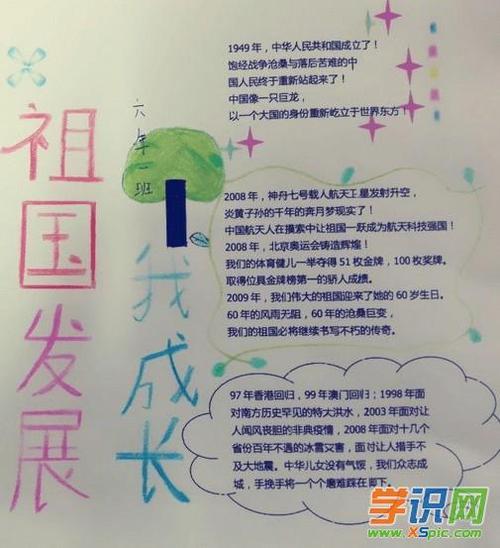 祖国发展
我成长
六年一班
1949年，中华人民共和国成立了！
饱经战争沧桑与落后苦难的中
国人民终于重新站起来了！
中国像一只巨龙，
以一个大国的身份重新屹立于世界东方！
2008年，神舟七号载人航天卫星发射升空，
炎黄子孙的千年的奔月梦现实了！
中国航天人在摸索中让祖国一跃成为航天科技强国！
2008年，北京奥运会铸造辉煌！
我们的体育健儿一举夺得51枚金牌，100枚奖牌。
取得位具金牌榜第一的骄人成绩。
2009年，我们伟大的祖国迎来了她的60岁生日。
60年的风雨无阻，60年的沧桑巨变，
我们的祖国必将继续书写不朽的传奇。
97年香港回归，99年澳门回归；1998年面
对南方历史罕见的特大洪水，2003年面对让
人闻风丧胆的非典疫情，2008年面对十几个
省份百年不遇的冰雪灾害，面对让人措手不
及大地震。中华儿女没有气馁，我们众志成
城，手挽手将一个个磨难踩在脚下。
学识网
www.XSpic.com